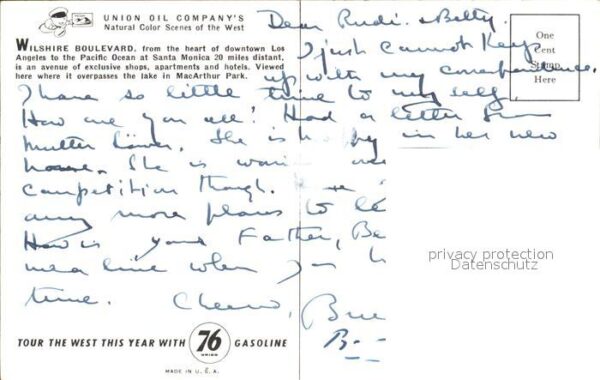 UNION OIL COMPANY'S
Natural Color Scenes of the West
WILSHIRE BOULEVARD, from the heart of downtown Los
Angeles to the Pacific Ocean at Santa Monica 20 miles distant,
is an avenue of exclusive shops, apartments and hotels. Viewed
here where it overpasses the lake in MacArthur Park.
One
Cent
Stamp
Here
Dear Rudi & Betty.
I just cannot keep
up with my correspondence.
I have so little time to my self.
How are you all? Had a letter from
mutter. She is in her new
house. She is
competition though.
any more plans to
How is your Father,
me a line when you
time. Cheerio,
privacy protection
Datenschutz
TOUR THE WEST THIS YEAR WITH 76 UNION GASOLINE
MADE IN U.S.A.